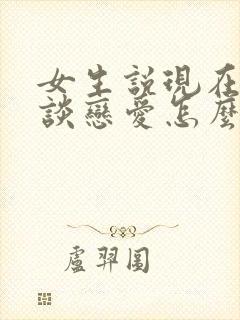 女生説現在
談戀愛怎麼
盧羿圓